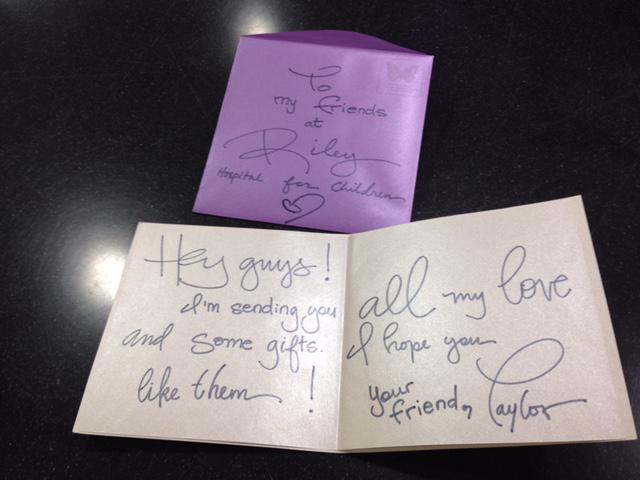 To
my friends
at
Riley
Hospital for Children
Hey guys!
I'm sending you all my love
and some gifts. I hope you
like them!
your
friend, Taylor